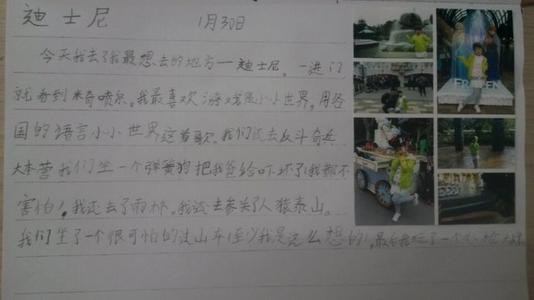 迪士尼 1月30日
今天我去了我最想去的地方一迪士尼。一进门
就看到米奇喷泉。我最喜欢游戏是小小世界,用各
国的语言小小世界这首歌。我们还去反斗奇兵
大本营我们坐一个弹簧狗把我爸给吓坏了!我都不
害怕!我还去了雨林。我还去参关了人猿泰山。
我们坐了一个很可怕的过山车(至少我是这么想的),最后我玩了一个
FROZEN